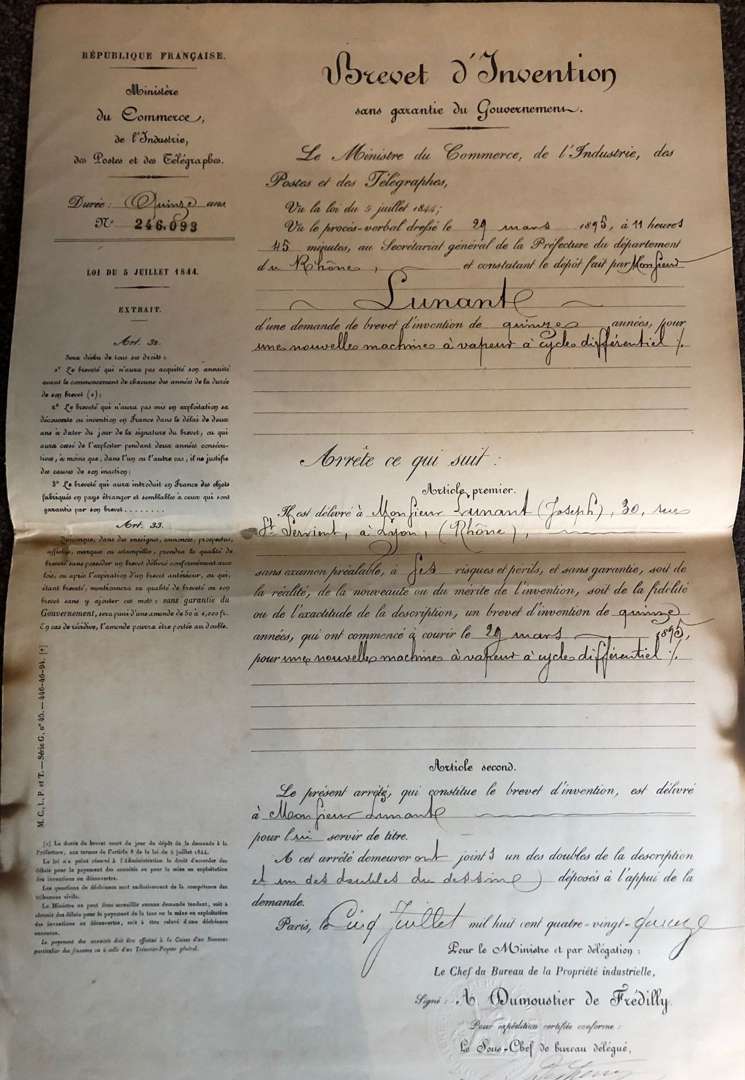 RÉPUBLIQUE FRANÇAISE.
Ministère
du Commerce,
de l'Industrie,
des Postes et des Télégraphes.
Durée: Quinze ans
N° 246,093
LOI DU 5 JUILLET 1844.
EXTRAIT.
Art. 32.
Sera déchu de tous ses droits:
1° Le breveté qui n'aura pas acquitté son annuité
avant le commencement de chacune des années de la durée
de son brevet (1);
2° Le breveté qui n'aura pas mis en exploitation sa
découverte ou invention en France dans le délai de deux
ans à dater du jour de la signature du brevet, ou qui
aura cessé de l'exploiter pendant deux années consécu-
tives, à moins que, dans l'un ou l'autre cas, il ne justifie
des causes de son inaction;
3° Le breveté qui aura introduit en France des objets
fabriqués en pays étranger et semblables à ceux qui sont
garantis par son brevet........
Art. 33.
Quiconque, dans des enseignes, annonces, prospectus,
affiches, marques ou estampilles, prendra la qualité de
breveté sans posséder un brevet délivré conformément aux
lois, ou après l'expiration d'un brevet antérieur, ou qui,
étant breveté, mentionnera sa qualité de breveté ou son
brevet sans y ajouter ces mots: sans garantie du
Gouvernement, sera puni d'une amende de 50 à 1,000 fr.
En cas de récidive, l'amende pourra être portée au double.
M. C., I. P. et T. — Série G, n° 40. — 446-46-94. [*]
[1] La durée du brevet court du jour du dépôt de la demande à la
Préfecture, aux termes de l'article 8 de la loi du 5 juillet 1844.
La loi n'a point réservé à l'Administration le droit d'accorder des
délais pour le payement des annuités ou pour la mise en exploitation
des inventions ou découvertes.
Les questions de déchéance sont exclusivement de la compétence des
tribunaux civils.
Le Ministre ne peut donc accueillir aucune demande tendant, soit à
obtenir des délais pour le payement de la taxe ou la mise en exploitation
des inventions ou découvertes, soit à être relevé d'une déchéance
encourue.
Le payement des annuités doit être effectué à la Caisse d'un Receveur
particulier des finances ou à celle d'un Trésorier-Payeur général.
Brevet d'Invention
sans garantie du Gouvernement.
Le Ministre du Commerce, de l'Industrie, des
Postes et des Télégraphes,
Vu la loi du 5 juillet 1844;
Vu le procès-verbal dressé le 29 mars 1895, à 11 heures
45 minutes, au Secrétariat général de la Préfecture du département
du Rhône, et constatant le dépôt fait par Monsieur
Lunant
d'une demande de brevet d'invention de quinze années, pour
une nouvelle machine à vapeur à cycle différentiel %.
Arrête ce qui suit:
Article premier.
Il est délivré à Monsieur Lunant (Joseph), 30, rue
St. Servient, à Lyon, (Rhône),
sans examen préalable, à ses risques et périls, et sans garantie, soit de
la réalité, de la nouveauté ou du mérite de l'invention, soit de la fidélité
ou de l'exactitude de la description, un brevet d'invention de quinze
années, qui ont commencé à courir le 29 mars 1895,
pour une nouvelle machine à vapeur à cycle différentiel %.
Article second.
Le présent arrêté, qui constitue le brevet d'invention, est délivré
à Monsieur Lunant
pour lui servir de titre.
A cet arrêté demeureront joints un des doubles de la description
et un des doubles du dessin déposés à l'appui de la
demande.
Paris, le Cinq Juillet mil huit cent quatre-vingt-quinze
Pour le Ministre et par délégation:
Le Chef du Bureau de la Propriété industrielle,
Signé: A Dumoustier de Frédilly.
Pour expédition certifiée conforme:
Le Sous-Chef de bureau délégué,